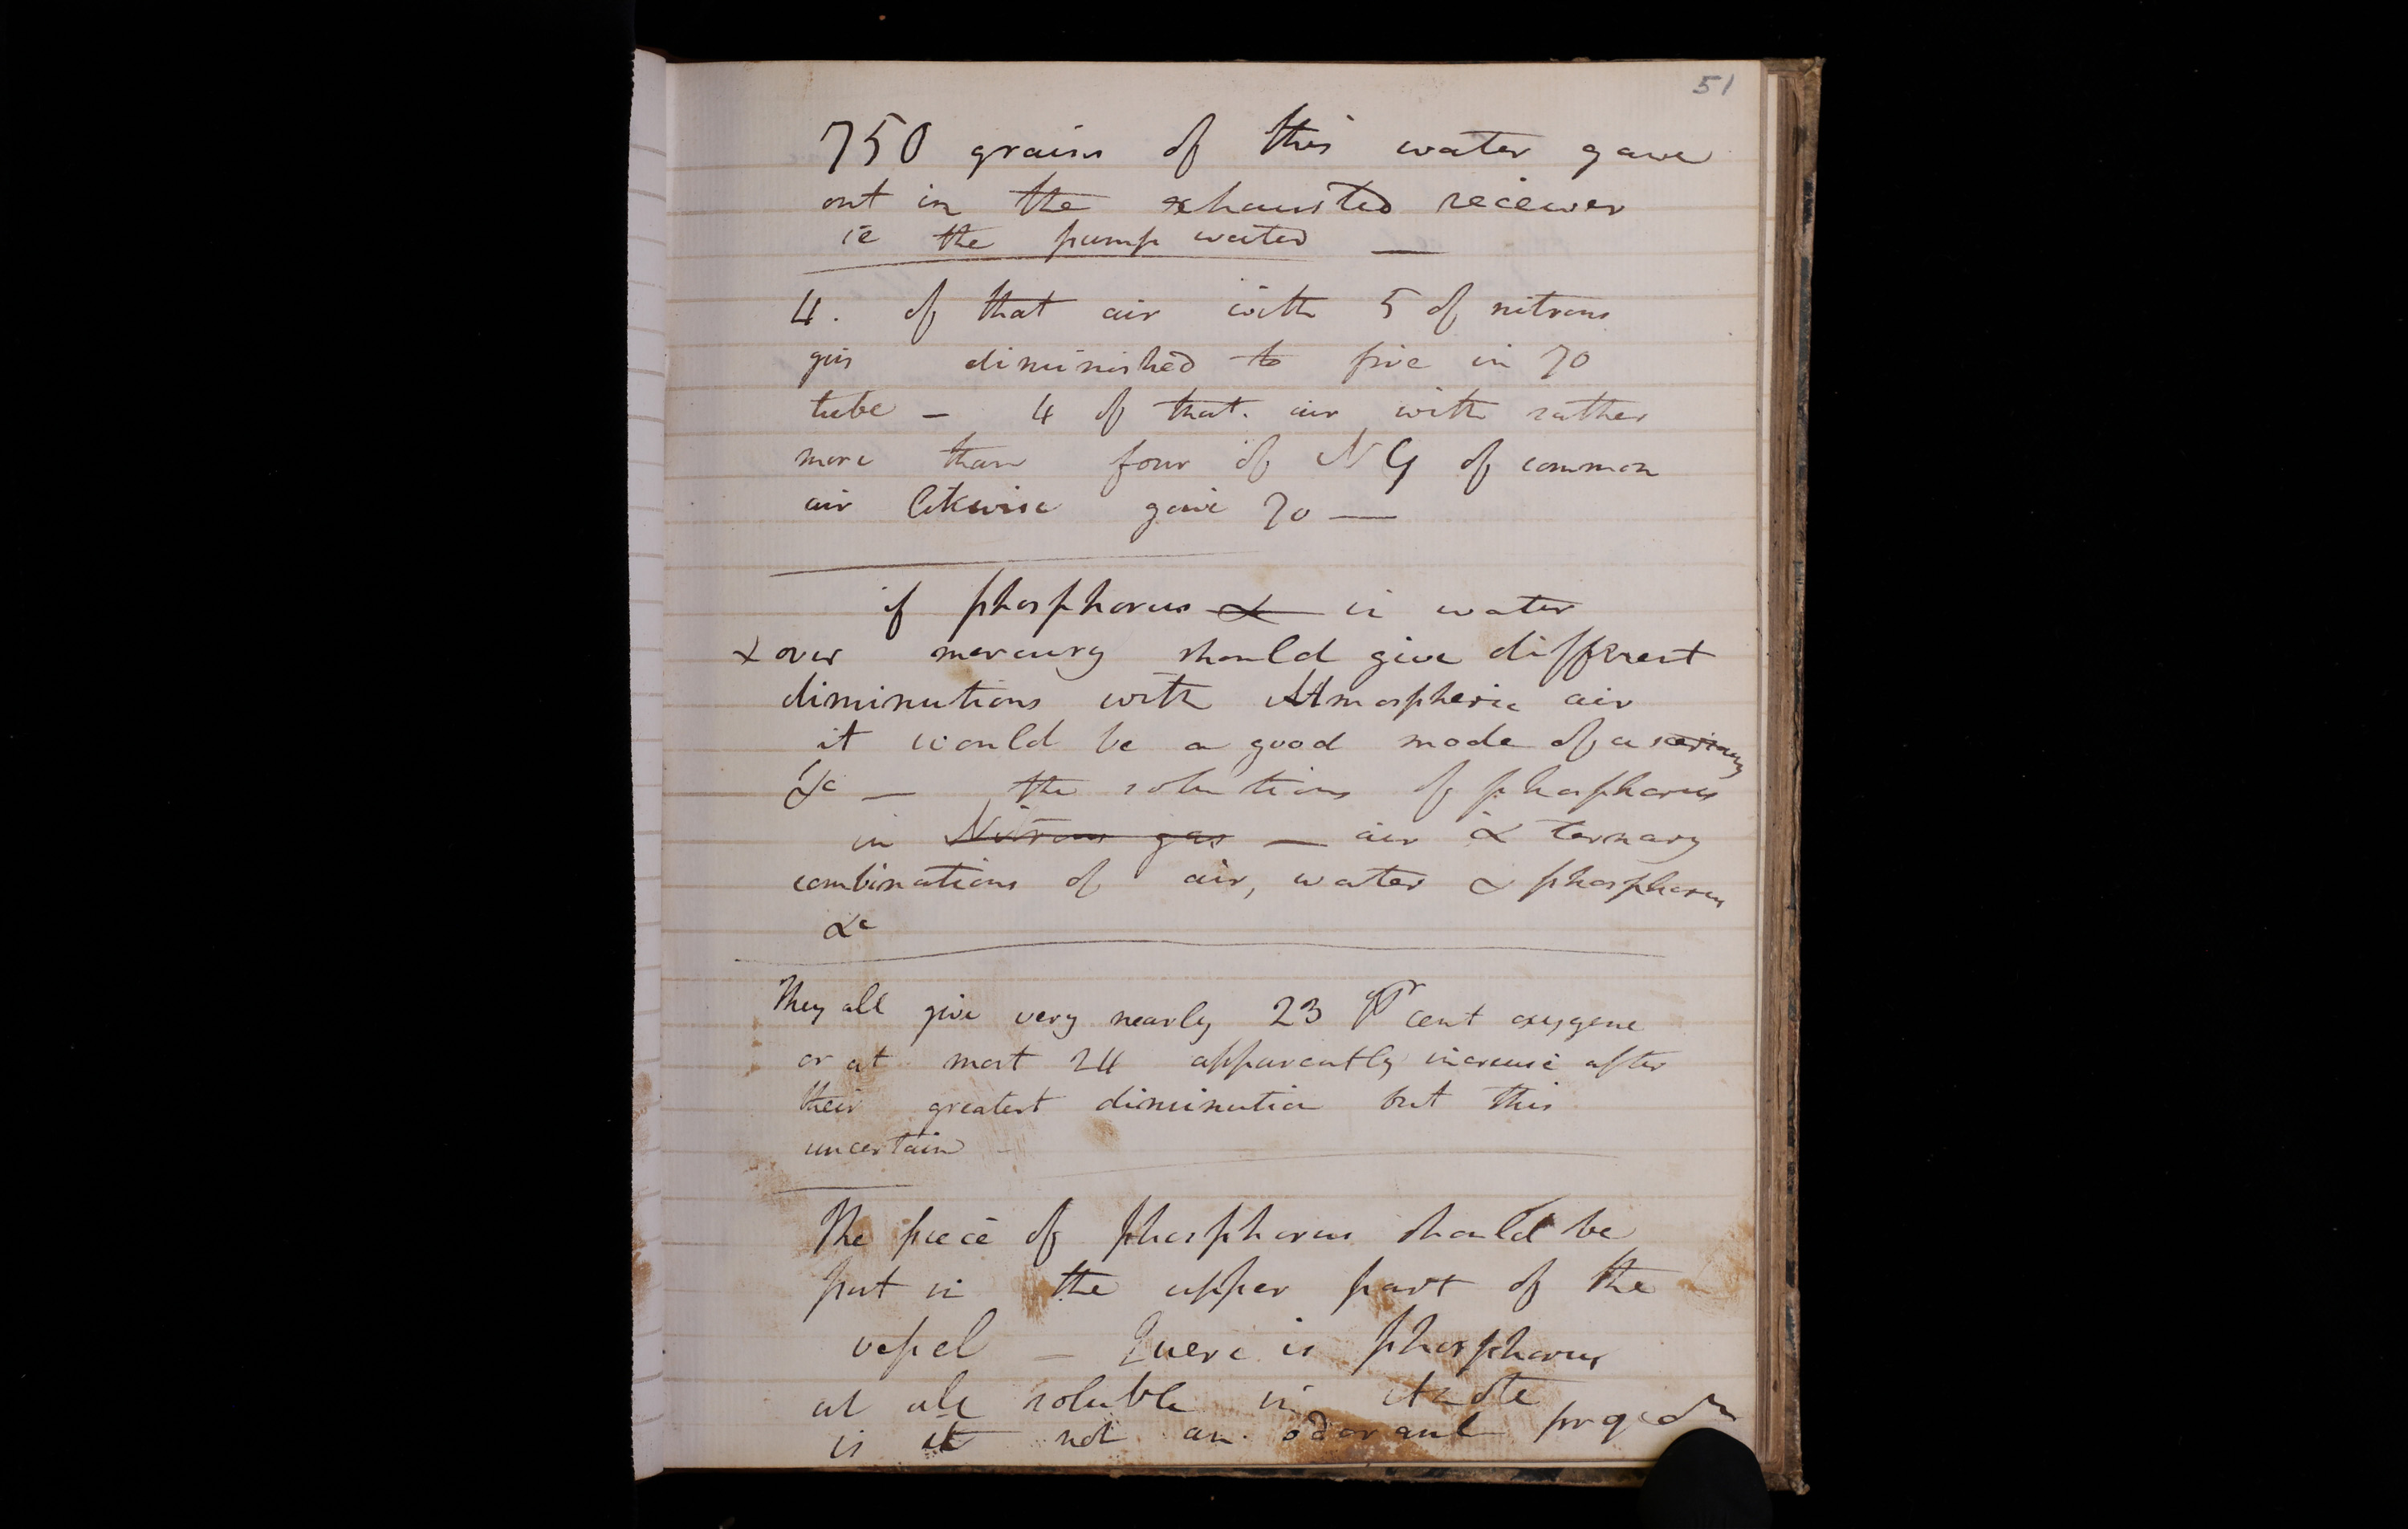 51
750 grains of this water gave
out in the exhausted receiver
ie the pump water —
4. of that air with 5 of nitrous
gas diminished to five in 70
tube — 4 of that. air with rather
more than four of NG of common
air likewise gave 70 —
if phosphorus & in water
& over mercury should give different
diminutions with Atmospheric air
it would be a good mode of
&c — the solutions of phosphorus
in Nitrous gas — air & ternary
combinations of air, water & phosphorus
&c
They all give very nearly 23 pr cent oxygene
or at most 24 apparently increase after
their greatest diminution but this
uncertain
The piece of phosphorus should be
put in the upper part of the
vessel — Quere is phosphorus
at all soluble in Azote
is it not an